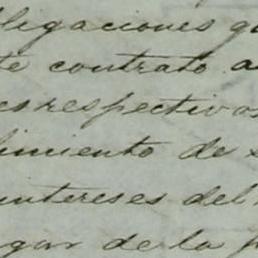 bligaciones q
te contrato a
es respectivos
limiento de s
intereses del
gar de la p